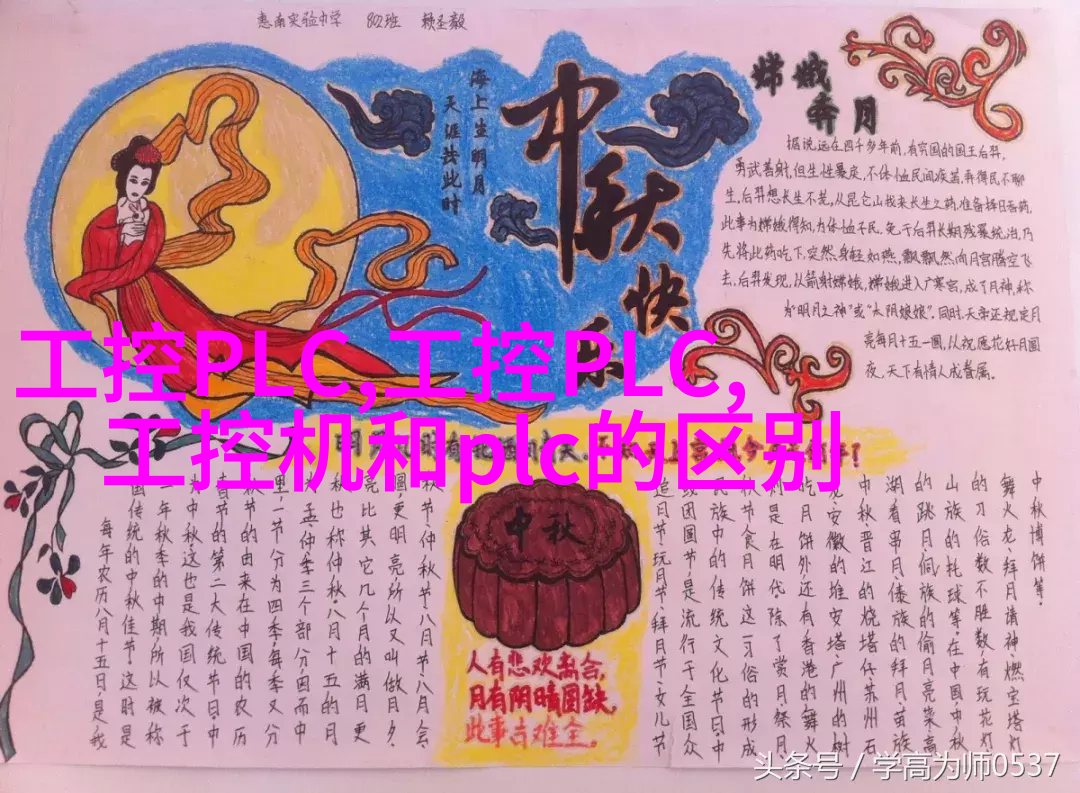 惠南实验中学 802班 赖圣毅
海上生明月
天涯共此时
中秋快乐
嫦娥
奔月
据说,远在四千多年前,有穷国的国王后羿,
勇武善射,但生性暴戾,不体恤民间疾苦,弄得民不聊
生。后羿想长生不死,从昆仑山找来长生之药,准备择日而药,
此事为嫦娥得知,为体恤平民,免于后羿长期残暴统治,乃
先将此药吃下,突然身轻如燕,飘飘然向月宫腾空飞
去,后羿发现,以箭射嫦娥,嫦娥进入广寒宫,成了月神,称
为“明月之神”或“太阴娘娘”。同时,天帝还规定月
亮每月十五一圆,从祝愿花好月圆
夜,天下有情人成眷属。
工控PLC,工控PLC,
工控机和plc的区别
中秋
人有悲欢离合,
月有阴晴圆缺,
此事古难全。
每年农历八月十五日,是我
国传统的中秋佳节。这时是
一年秋季的中期,所以被称
为中秋。这也是我国仅次于
春节的第二大传统节日。中
秋节的由来在中国的农历
里,一节分为四季,每季又分
孟、仲、季三个部分,因而中
秋也称仲秋。八月十五的月
亮比其它几个月的满月更
圆,更明亮,所以又叫做月夕,
秋节、仲秋节、八月节、八月会
追月节、玩月节、拜月节、女儿节
或团圆节,是流行于全国众
民族中的传统文化节日。中
秋节食月饼这一习俗的形成
则是在明代。除了赏月、祭月、
吃月饼外,还有香港的舞火
龙、安徽的堆安塔、广州的树
中秋、晋江的烧塔仔、苏州石
湖看串月、傣族的拜月、苗族
的跳月、侗族的偷月亮菜、高
山族的托球等。在中国,中秋
的习俗数不胜数,有玩花灯、
舞火龙、拜月请神、燃宝塔灯
中秋博饼等。
头条号 / 学高为师0537